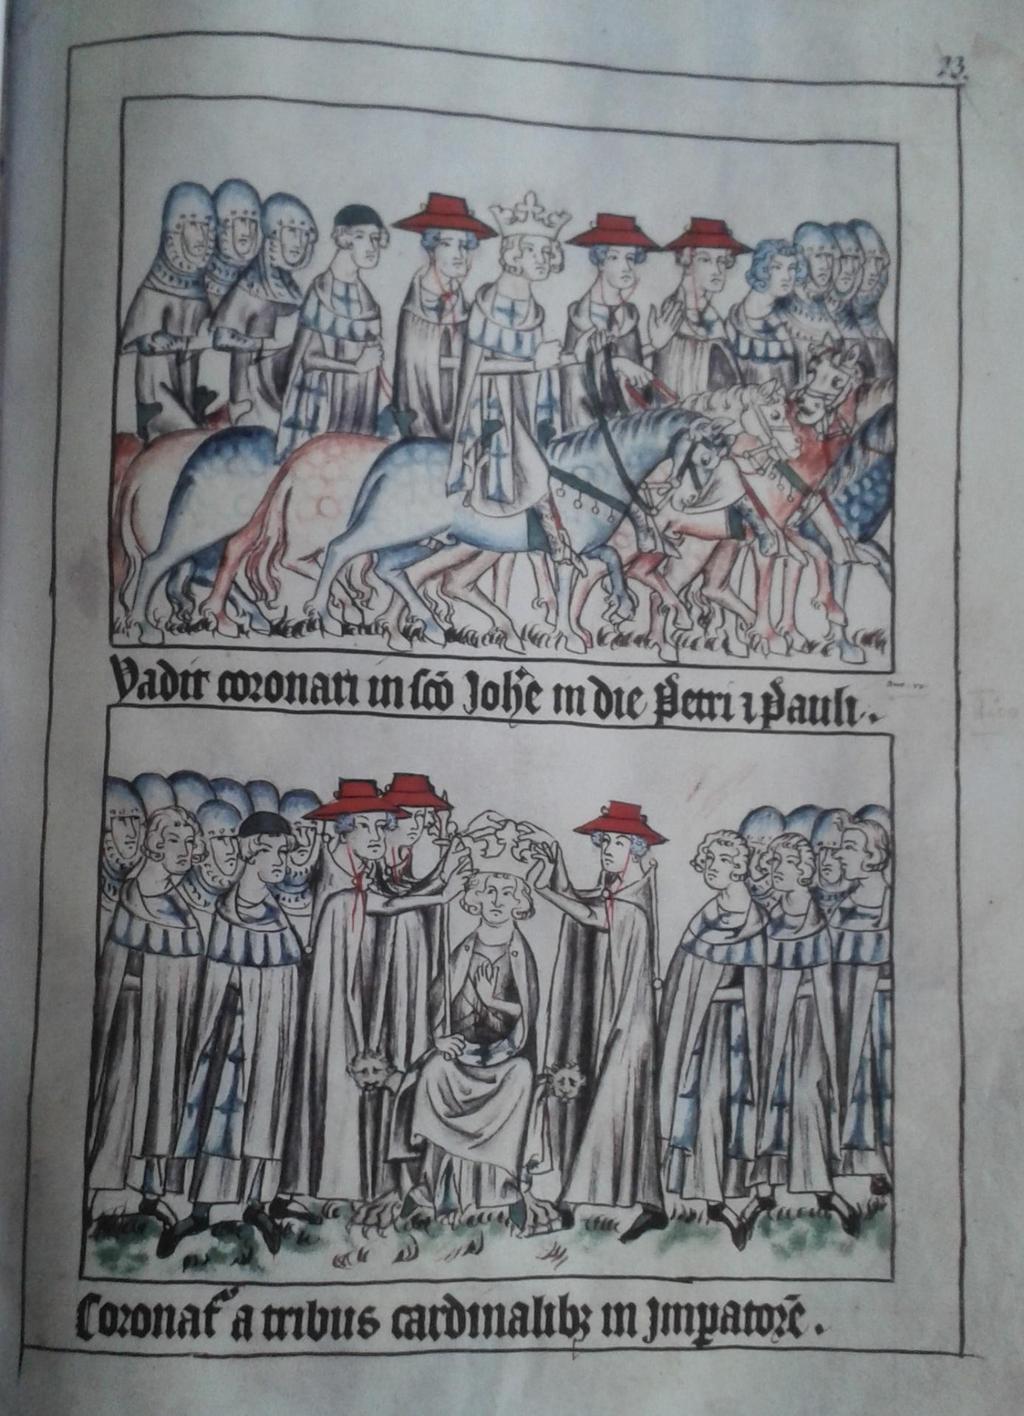 23.
Vadit coronari in sc̄o Joh̄e in die Petri ⁊ Pauli.
Coronat͛ a tribus cardinalibꝫ in Jmp̱atorē.